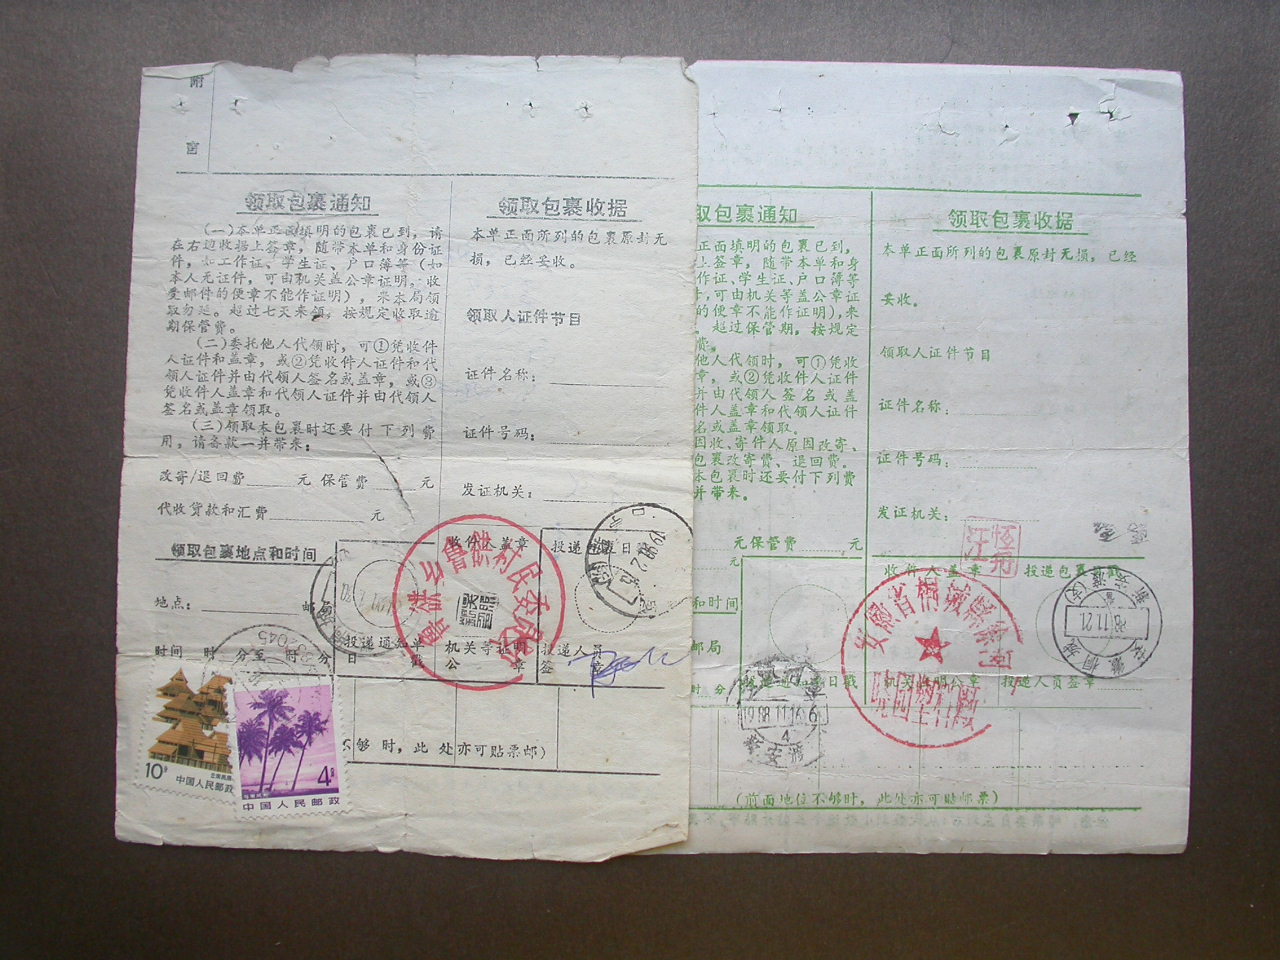 附
言
领取包裹通知
(一)本单正面填明的包裹已到，请
在右边收据上签章，随带本单和身份证
件，如工作证、学生证、户口簿等(如
本人无证件，可由机关盖公章证明，收
受邮件的便章不能作证明)，来本局领
取勿延。超过七天来领，按规定收取逾
期保管费。
(二)委托他人代领时，可①凭收件
人证件和盖章，或②凭收件人证件和代
领人证件并由代领人签名或盖章，或③
凭收件人盖章和代领人证件并由代领人
签名或盖章领取。
(三)领取本包裹时还要付下列费
用，请备款一并带来：
改寄/退回费 元 保管费 元
代收货款和汇费 元
领取包裹地点和时间
地点： 邮局
时间 时 分至 时 分
投递通知单
日 戳
领取包裹收据
本单正面所列的包裹原封无
损，已经妥收。
领取人证件节目
证件名称：
证件号码：
发证机关：
收件人盖章
投递包裹日戳
机关等证明
公 章
投递人员
签 章
乡鲁洪村民委员会
不够时，此处亦可贴票邮)
10分
中国人民邮政
4分
中国人民邮政
取包裹通知
正面填明的包裹已到，
上签章，随带本单和身
作证、学生证、户口簿等
，可由机关等盖公章证
的便章不能作证明)，来
。超过保管期，按规定
费。
他人代领时，可①凭收
章，或②凭收件人证件
并由代领人签名或盖
件人盖章和代领人证件
名或盖章领取。
因收、寄件人原因改寄、
包裹改寄费、退回费。
本包裹时还要付下列费
并带来。
元 保管费 元
元
和时间
邮局
时 分
领取包裹收据
本单正面所列的包裹原封无损，已经
妥收。
领取人证件节目
证件名称：
证件号码：
发证机关：
收件人盖章
投递包裹日戳
机关等证明公章
投递人员签章
安徽省桐城县
1988.11.16
4
88.11.21
安徽
桐城
(前面地位不够时，此处亦可贴邮票)